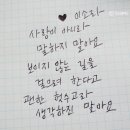 ♥ 이소라
사랑이 아니라
말하지 말아요
보이지 않는 길을
걸으려 한다고
괜한 헛수고라
생각하진 말아요